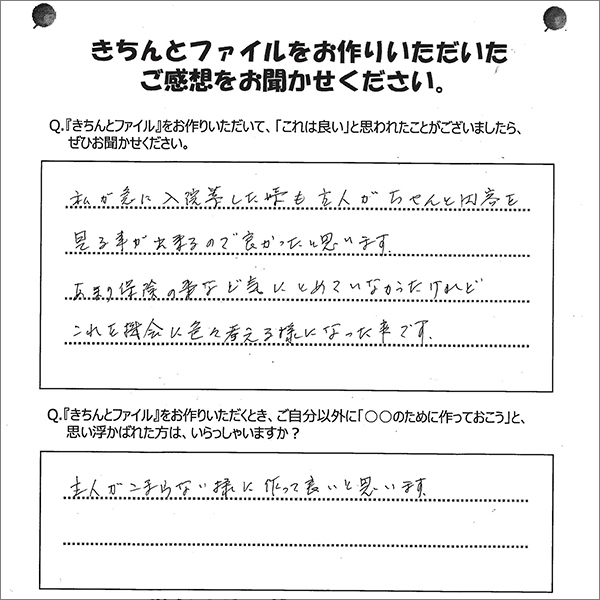 きちんとファイルをお作りいただいた
ご感想をお聞かせください。
Q.『きちんとファイル』をお作りいただいて、「これは良い」と思われたことがございましたら、
ぜひお聞かせください。
私が急に入院等した時も主人がちゃんと内容を
見る事が出来るので良かったと思います。
あまり保険の事など気にとめていなかったけれど
これを機会に色々考える様になった事です。
Q.『きちんとファイル』をお作りいただくとき、ご自分以外に「○○のために作っておこう」と、
思い浮かばれた方は、いらっしゃいますか？
主人がこまらない様に作って良いと思います。